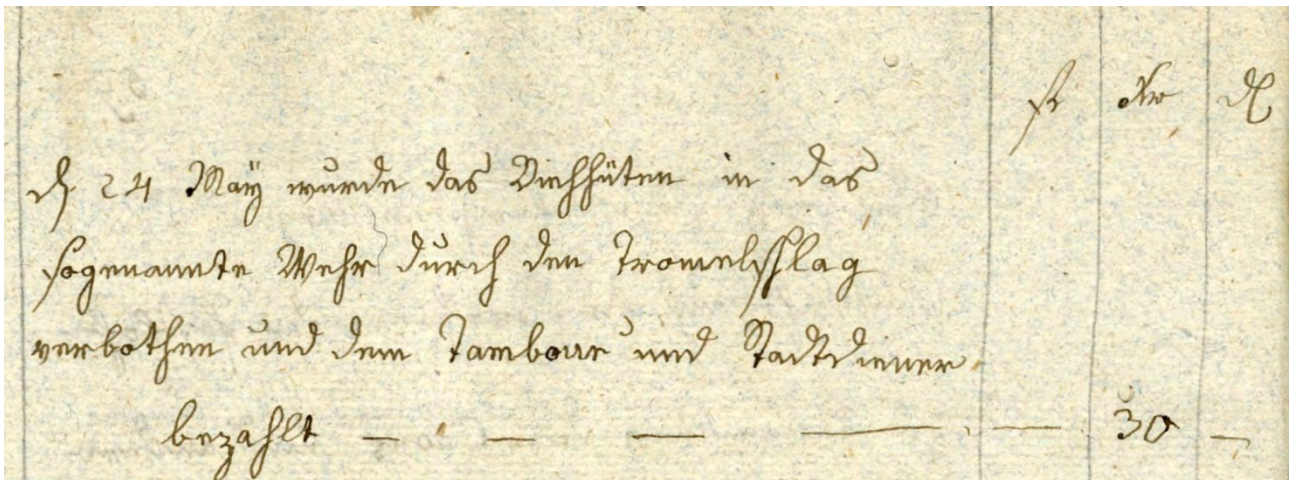 fl xr d
d 24 Maÿ wurde das Viehhüten in das
sogenannte Wehr durch den Tromelschlag
verbothen und dem Tambour und Stadtdiener
bezahlt — — — — — 30 —